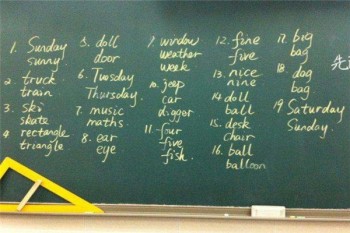 1. Sunday
sunny
2. truck
train
3. ski
skate
4. rectangle
triangle
5. doll
door
6. Tuesday
Thursday
7. music
maths
8. ear
eye
9. window
weather
week
10. jeep
car
digger
11. four
five
fish
12. fine
five
13. nice
nine
14. doll
ball
15. desk
chair
16. ball
balloon
17. big
bag
18. dog
bag
19 Saturday
Sunday
先